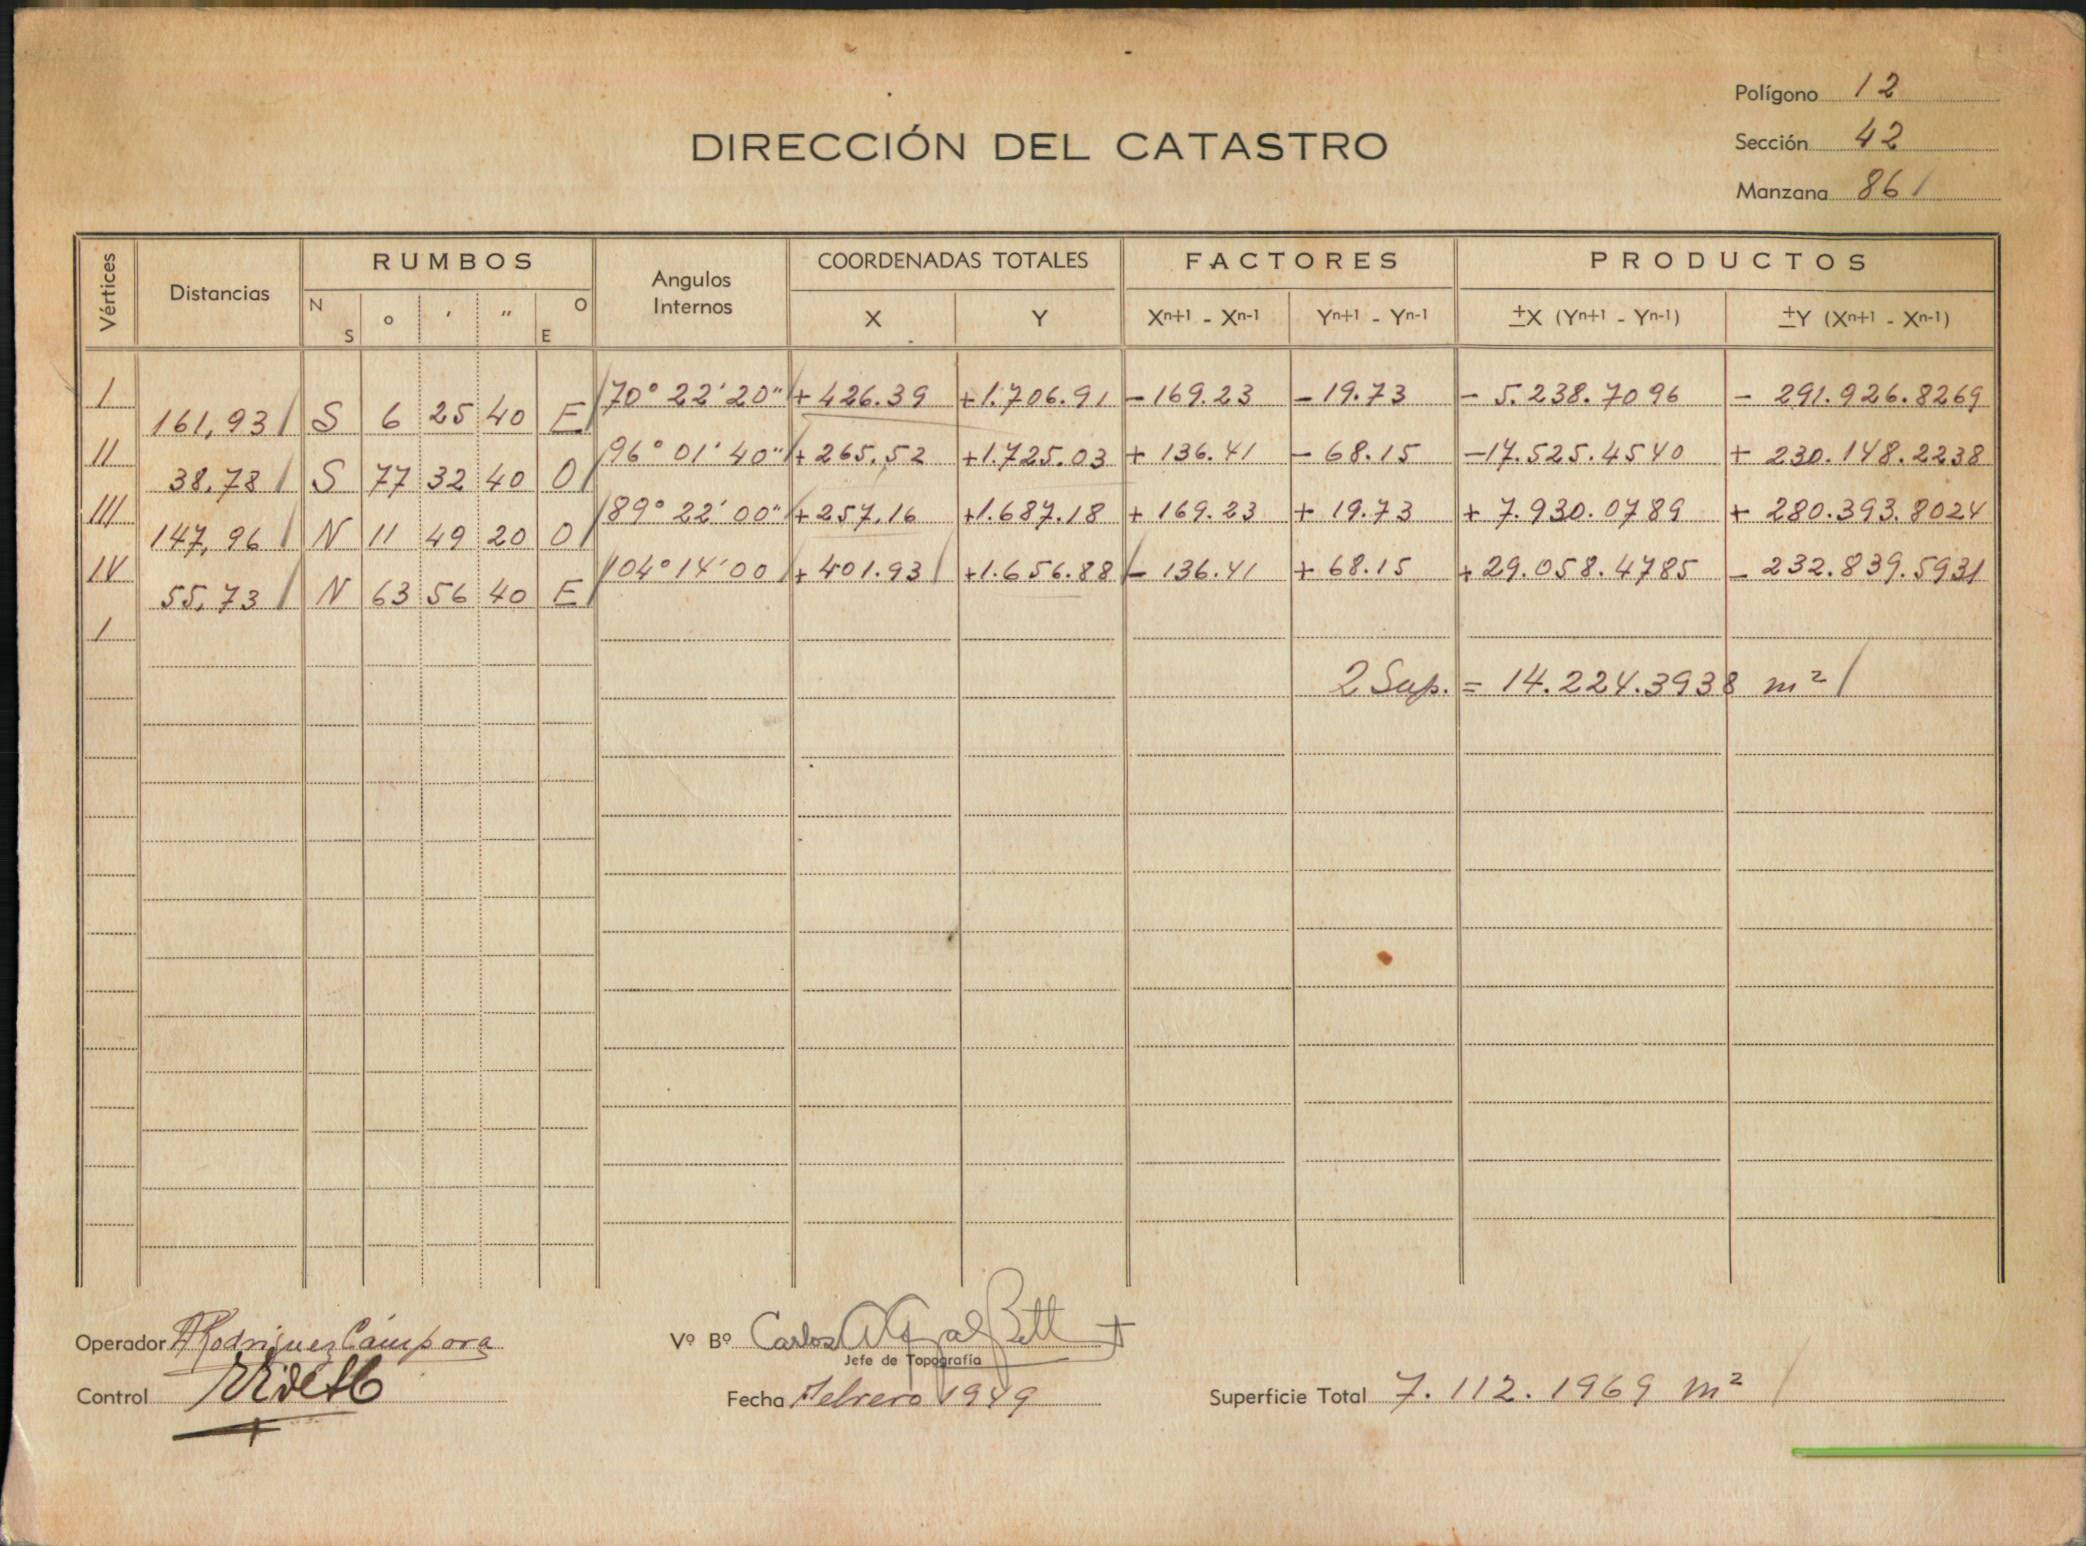 Polígono 12
DIRECCIÓN DEL CATASTRO
Sección 42
Manzana 86 /
Vértices Distancias RUMBOS Angulos Internos COORDENADAS TOTALES FACTORES PRODUCTOS
N S o ' " O E X Y Xn+1 - Xn-1 Yn+1 - Yn-1 ±X (Yn+1 - Yn-1) ±Y (Xn+1 - Xn-1)
I 70° 22' 20" + 426.39 +1.706.91 - 169.23 - 19.73 - 5.238.7096 - 291.926.8269
161,93 / S 6 25 40 E /
II 96° 01' 40" + 265.52 +1.725.03 + 136.41 - 68.15 -17.525.4540 + 230.148.2238
38,78 / S 77 32 40 O /
III 89° 22' 00" + 257.16 +1.687.18 + 169.23 + 19.73 + 7.930.0789 + 280.393.8024
147,96 / N 11 49 20 O /
IV 104° 14' 00 + 401.93 / +1.656.88 / - 136.41 + 68.15 + 29.058.4785 - 232.839.5931
55,73 / N 63 56 40 E /
I
2 Sup. = 14.224.3938 m² /
Operador Rodriguez Cámpora Vº Bº Carlos A
Jefe de Topografía
Control Fecha Febrero 1949 Superficie Total 7.112.1969 m² /